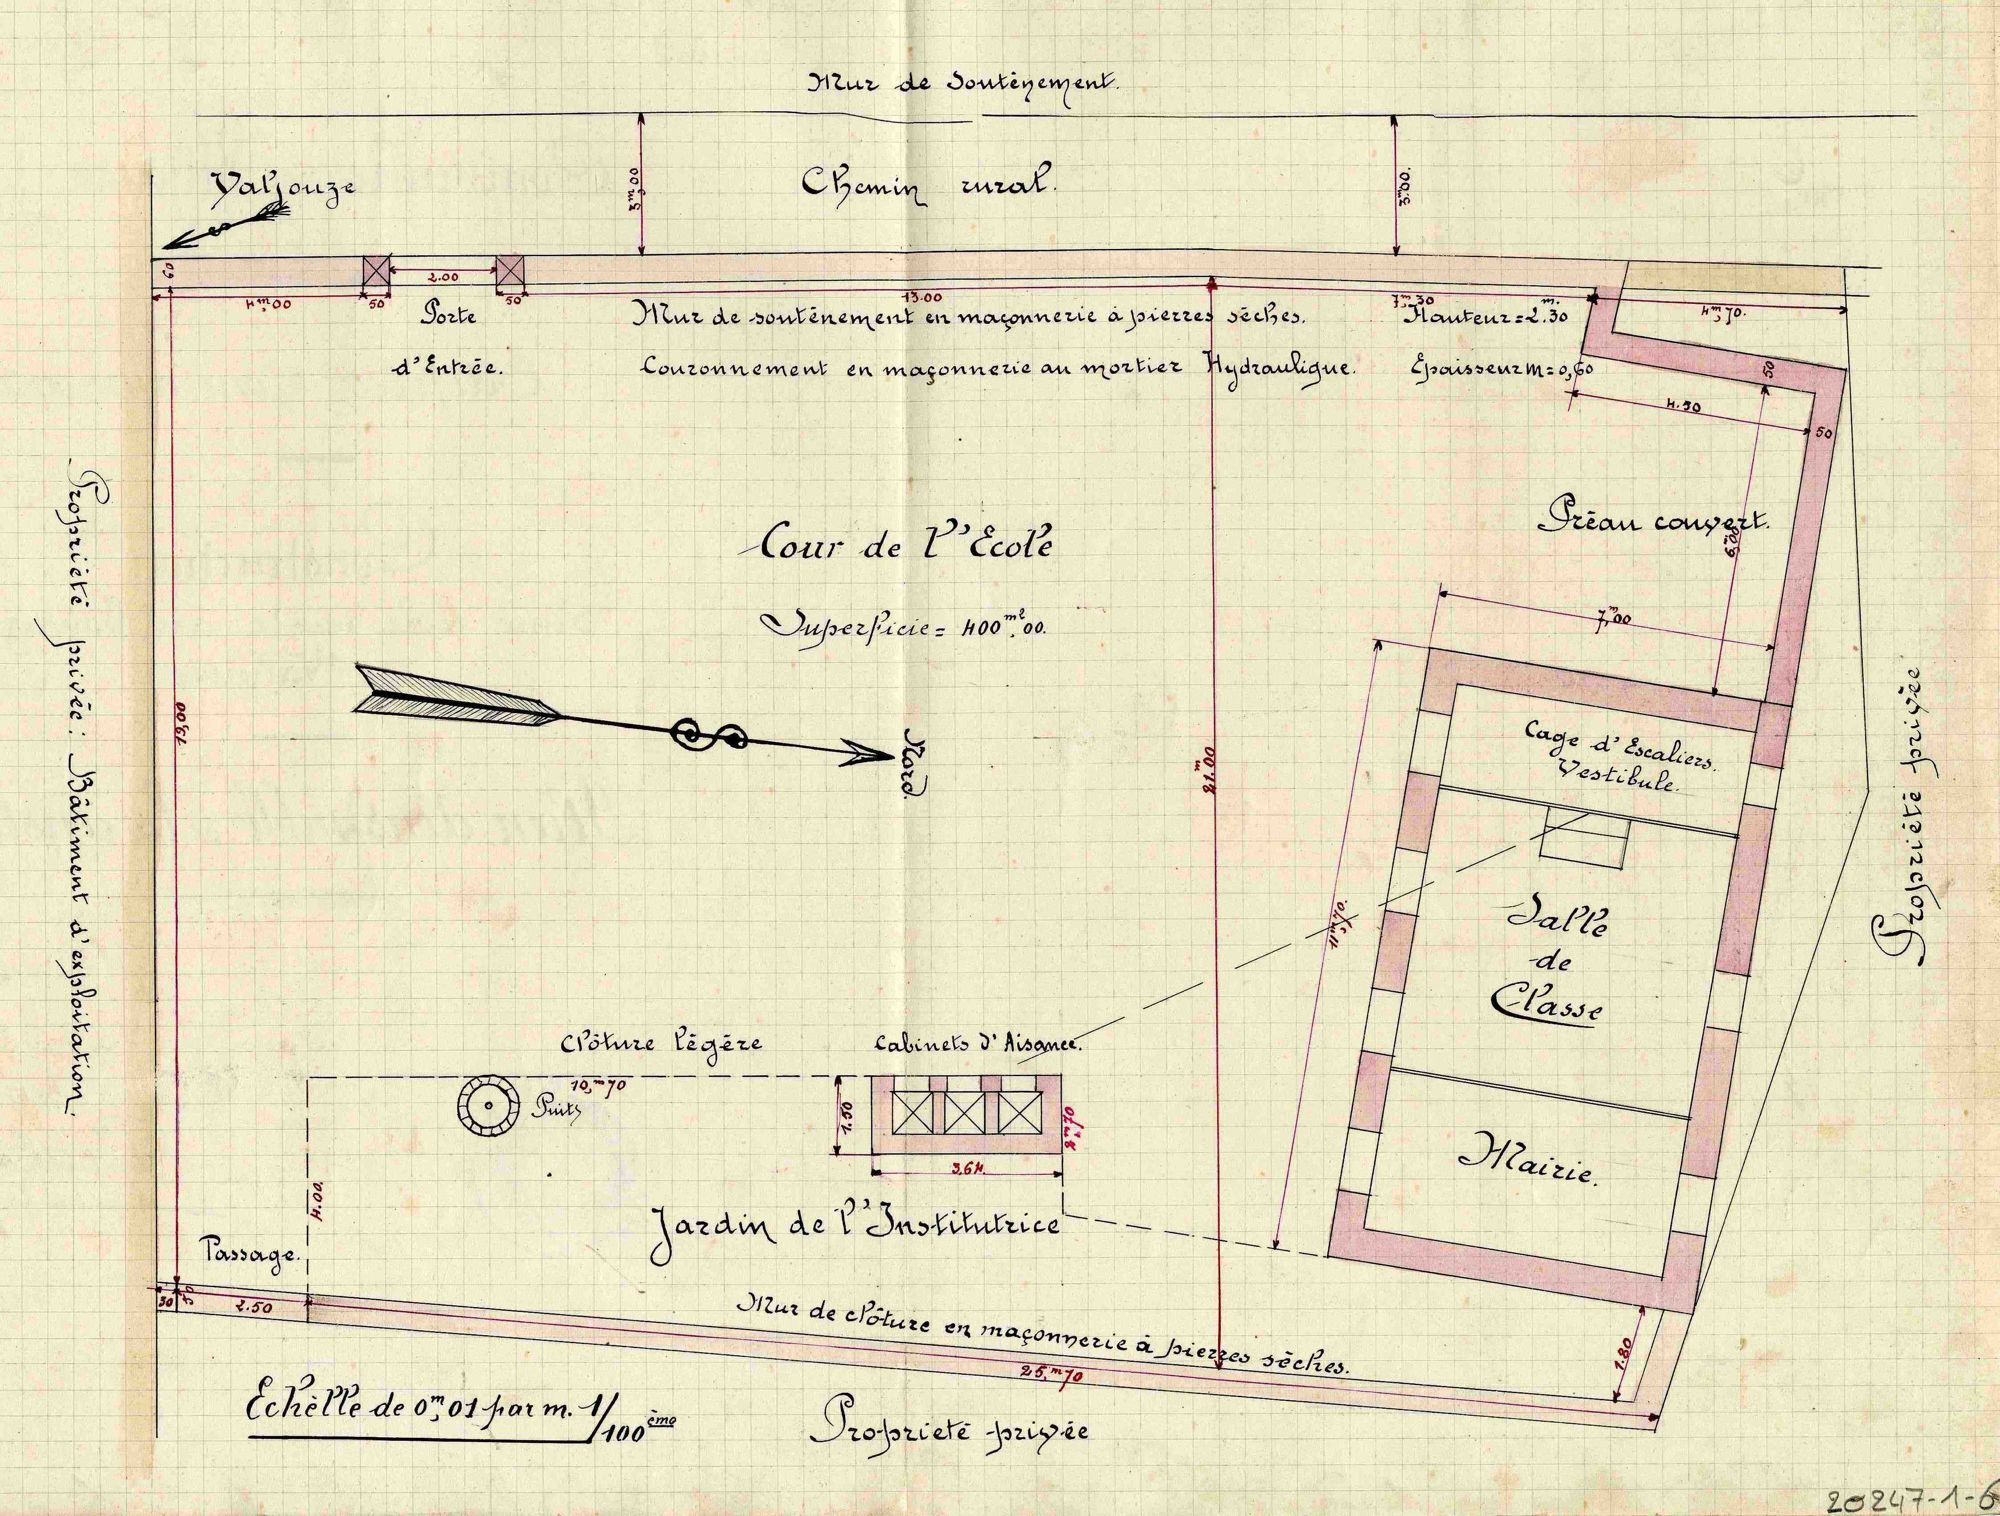 Mur de Soutènement.
Valjouze
3m,00
Chemin rural.
3.00.
60
4m,00
50
2.00
50
13.00
7m,30
4m,70.
Porte
d'Entrée.
Mur de soutènement en maçonnerie à pierres sèches. Hauteur = 2.m30
Couronnement en maçonnerie au mortier Hydraulique. Epaisseur m = 0,60
50
4.50
50
Préau couvert.
6,00
Cour de l'Ecole
Superficie = 400m2,00.
7,m00
Nord.
Propriété privée : Bâtiment d'exploitation.
Propriété privée
21.m00
Cage d'Escaliers.
Vestibule.
Salle
de
Classe
Mairie.
Clôture légère
Cabinets d'Aisance.
10,m70
Puits
1.50
2m,70
3,64.
4.00.
Jardin de l'Institutrice
Passage.
30
50
2.50
Mur de clôture en maçonnerie à pierres sèches.
25,m70
1.80
Echelle de 0m,01 par m. 1/100ème
Propriété privée
20247-1-6